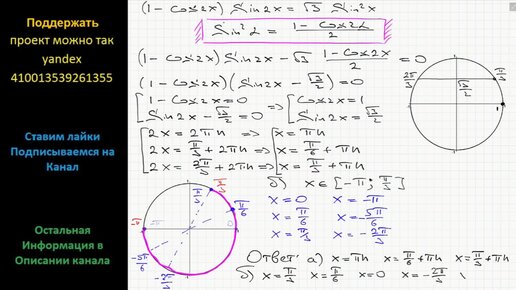 Поддержать
проект можно так
yandex
410013539261355
Ставим лайки
Подписываемся на
Канал
Остальная
Информация в
Описании канала
(1 - Cos2x) Sin2x = √3 Sin²x
Sin²α = (1 - Cos2α)/2
(1 - Cos2x) Sin2x - √3 (1 - Cos2x)/2 = 0
(1 - Cos2x)(Sin2x - √3/2) = 0
[1 - Cos2x = 0 => [Cos2x = 1
Sin2x - √3/2 = 0 Sin2x = √3/2
[2x = 2πn => [x = πn
2x = π/3 + 2πn => x = π/6 + πn
2x = 2π/3 + 2πn x = π/3 + πn
б) x ∈ [-π; π/3]
x = 0 x = -π
x = π/6 x = -5π/6
x = π/3 x = -2π/3
Ответ: а) x = πn x = π/6 + πn x = π/3 + πn
б) x = π/3 x = π/6 x = 0 x = -2π/3
2π/3 π/3
√3/2
1
π/3
π/6
0
-π
-5π/6
-2π/3